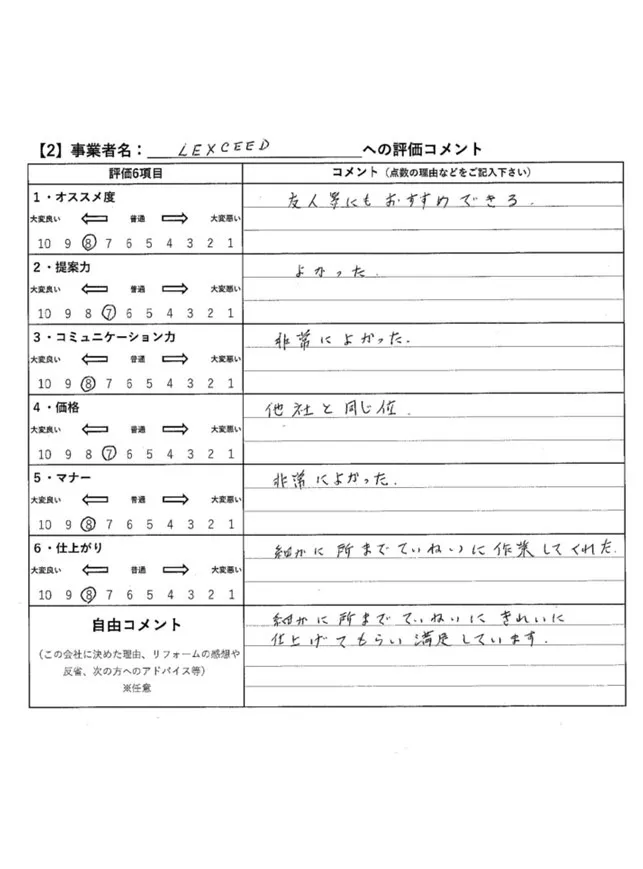 【2】事業者名： LEXCEED への評価コメント
評価6項目
コメント（点数の理由などをご記入下さい）
1・オススメ度
大変良い 普通 大変悪い
10 9 8 7 6 5 4 3 2 1
友人等にもおすすめできる.
2・提案力
大変良い 普通 大変悪い
10 9 8 7 6 5 4 3 2 1
よかった.
3・コミュニケーション力
大変良い 普通 大変悪い
10 9 8 7 6 5 4 3 2 1
非常によかった.
4・価格
大変良い 普通 大変悪い
10 9 8 7 6 5 4 3 2 1
他社と同じ位.
5・マナー
大変良い 普通 大変悪い
10 9 8 7 6 5 4 3 2 1
非常によかった.
6・仕上がり
大変良い 普通 大変悪い
10 9 8 7 6 5 4 3 2 1
細かに所までていねいに作業してくれた.
自由コメント
（この会社に決めた理由、リフォームの感想や
反省、次の方へのアドバイス等）
※任意
細かに所までていねいにきれいに
仕上げてもらい満足しています.